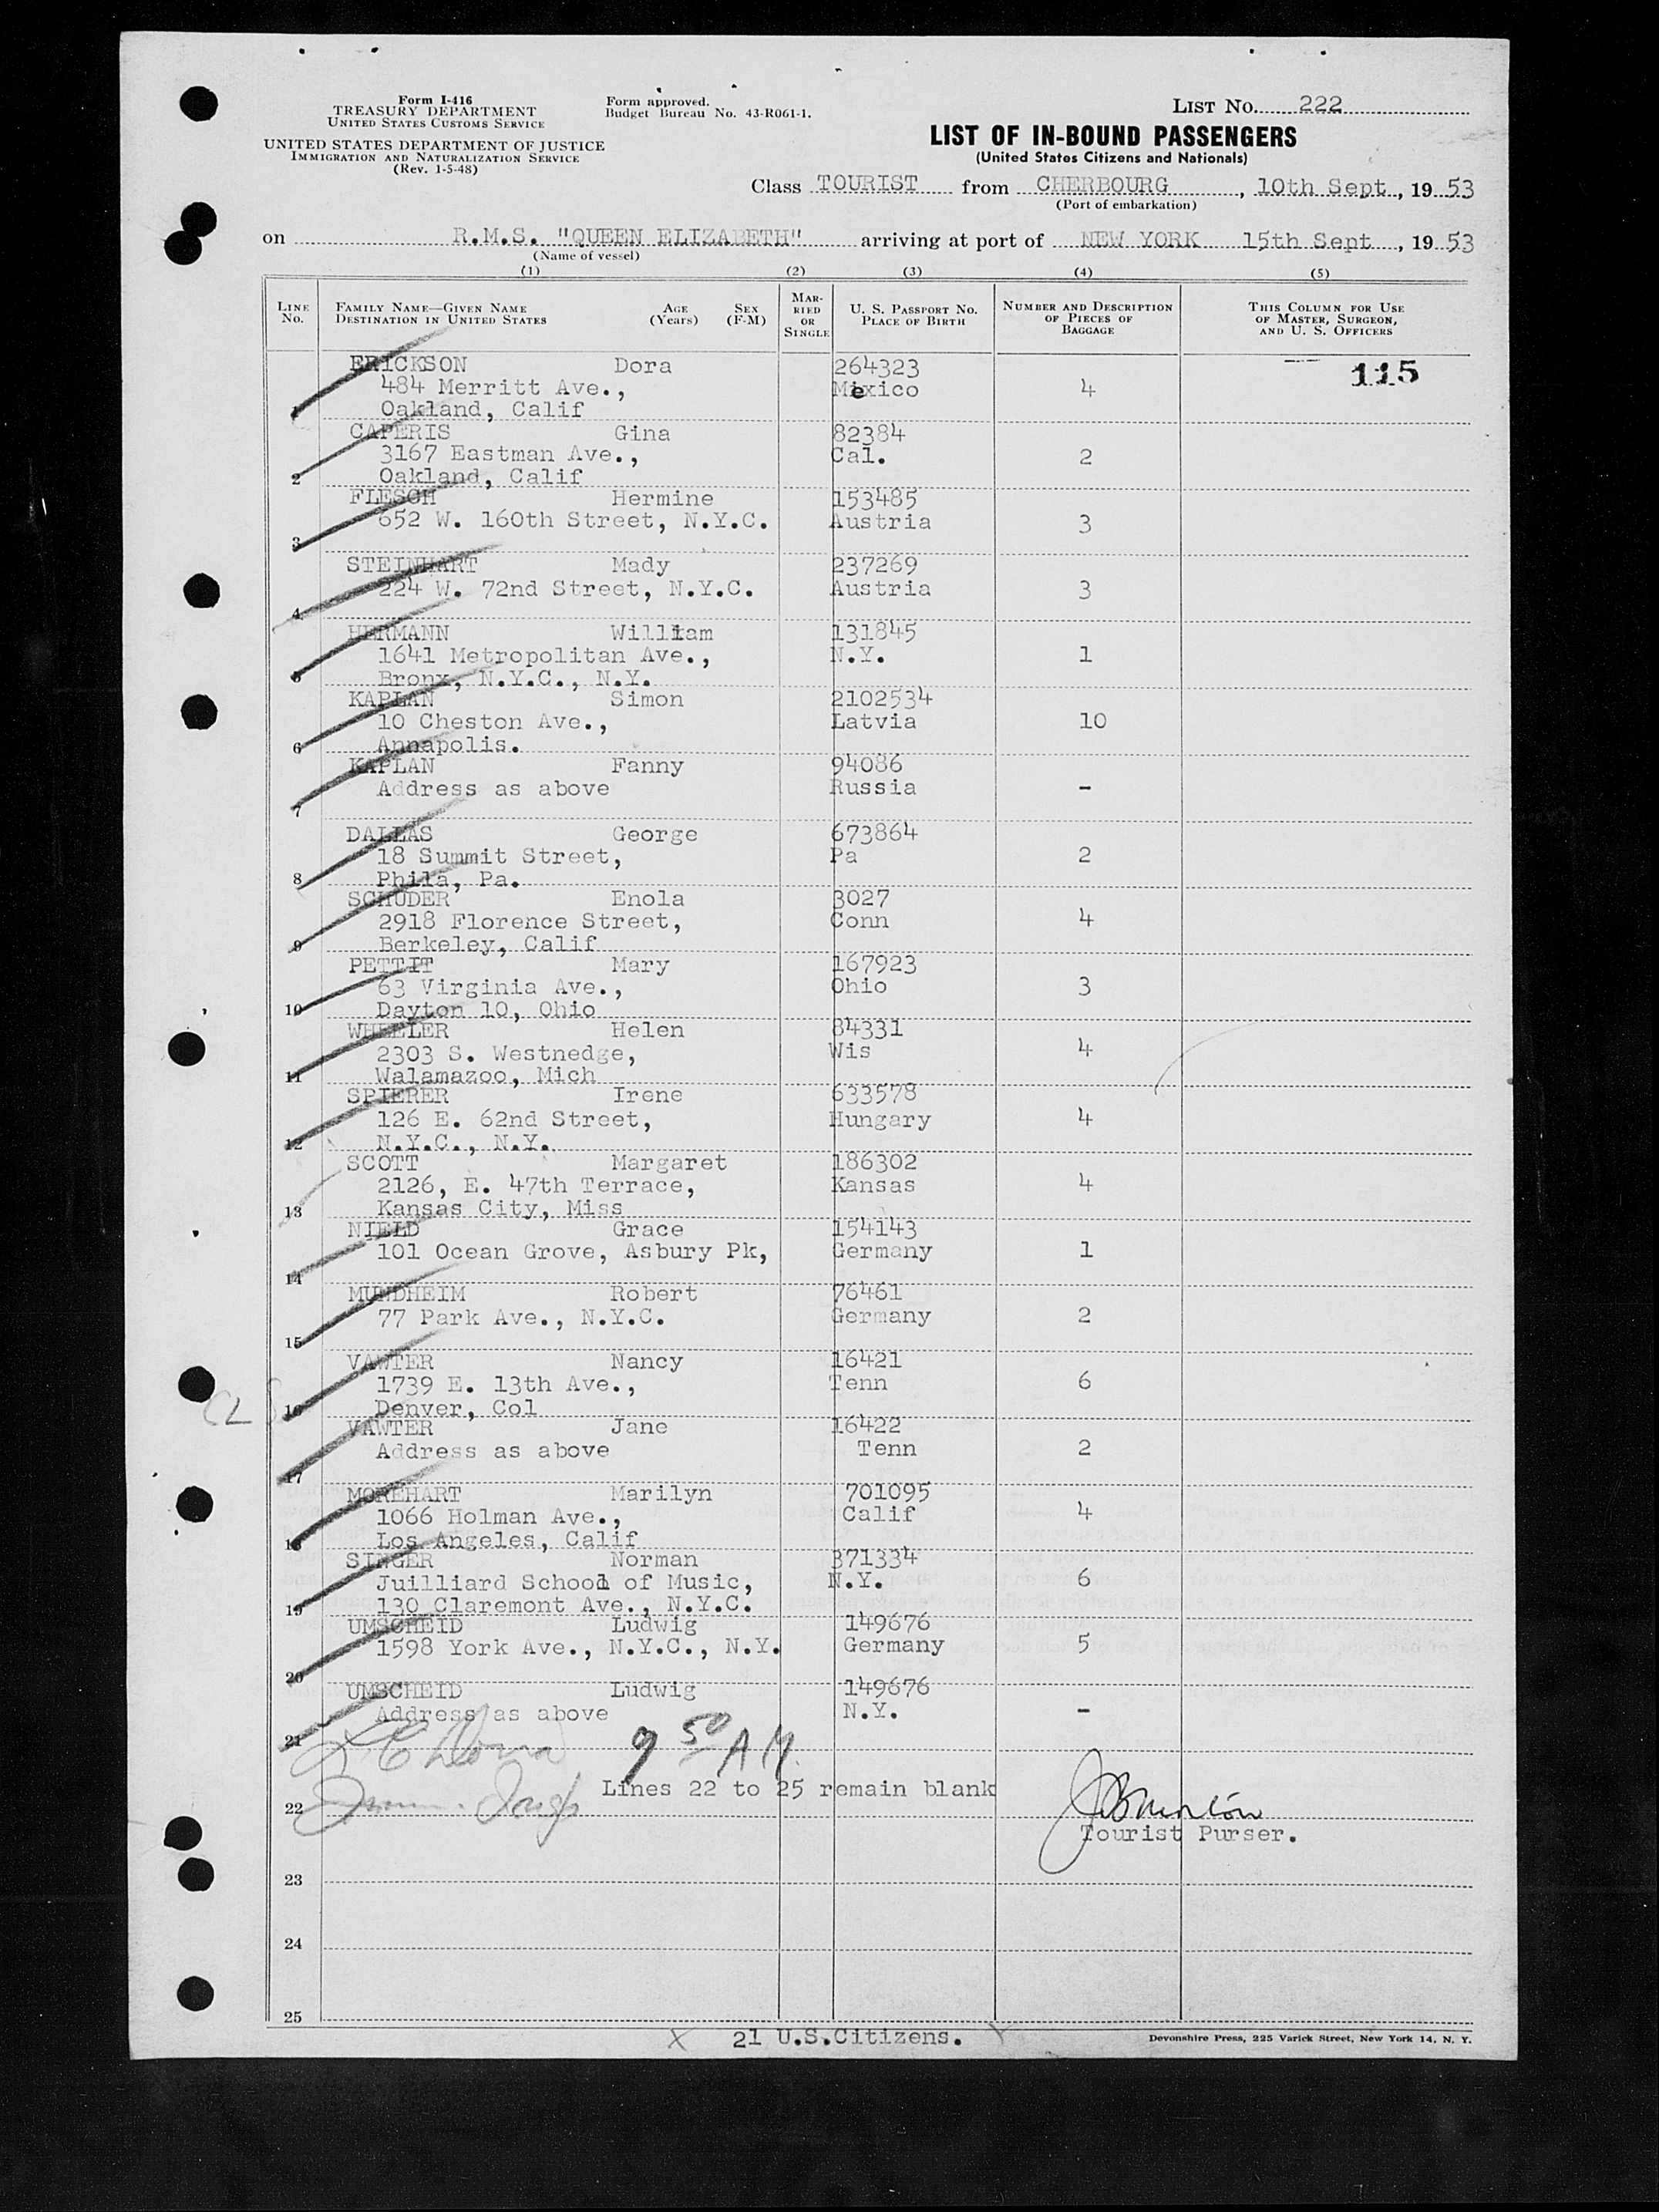 Form I-416
TREASURY DEPARTMENT
UNITED STATES CUSTOMS SERVICE
UNITED STATES DEPARTMENT OF JUSTICE
IMMIGRATION AND NATURALIZATION SERVICE
(Rev. 1-5-48)
Form approved.
Budget Bureau No. 43-R061-1.
LIST No. 222
LIST OF IN-BOUND PASSENGERS
(United States Citizens and Nationals)
Class TOURIST from CHERBOURG, 10th Sept, 1953
(Port of embarkation)
on R.M.S. "QUEEN ELIZABETH" arriving at port of NEW YORK 15th Sept, 1953
(Name of vessel)
(1) (2) (3) (4) (5)
LINE No. FAMILY NAME—GIVEN NAME DESTINATION IN UNITED STATES AGE (Years) SEX (F-M) MARRIED OR SINGLE U. S. PASSPORT No. PLACE OF BIRTH NUMBER AND DESCRIPTION OF PIECES OF BAGGAGE THIS COLUMN FOR USE OF MASTER, SURGEON, AND U. S. OFFICERS
ERICKSON Dora 264323 115
484 Merritt Ave., Mexico 4
1 Oakland, Calif
CAPERIS Gina 82384
3167 Eastman Ave., Cal. 2
2 Oakland, Calif
FLESCH Hermine 153485
652 W. 160th Street, N.Y.C. Austria 3
3
STEINHART Mady 237269
224 W. 72nd Street, N.Y.C. Austria 3
4
HERMANN William 131845
1641 Metropolitan Ave., N.Y. 1
5 Bronx, N.Y.C., N.Y.
KAPLAN Simon 2102534
10 Cheston Ave., Latvia 10
6 Annapolis.
KAPLAN Fanny 94086
Address as above Russia -
7
DALLAS George 673864
18 Summit Street, Pa 2
8 Phila, Pa.
SCHUDER Enola 3027
2918 Florence Street, Conn 4
9 Berkeley, Calif
PETTIT Mary 167923
63 Virginia Ave., Ohio 3
10 Dayton 10, Ohio
WHEELER Helen 84331
2303 S. Westnedge, Wis 4
11 Walamazoo, Mich
SPIERER Irene 633578
126 E. 62nd Street, Hungary 4
12 N.Y.C., N.Y.
SCOTT Margaret 186302
2126, E. 47th Terrace, Kansas 4
13 Kansas City, Miss
NIELD Grace 154143
101 Ocean Grove, Asbury Pk, Germany 1
14
MUNDHEIM Robert 76461
77 Park Ave., N.Y.C. Germany 2
15
VAWTER Nancy 16421
1739 E. 13th Ave., Tenn 6
16 Denver, Col
VAWTER Jane 16422
Address as above Tenn 2
17
MOREHART Marilyn 701095
1066 Holman Ave., Calif 4
18 Los Angeles, Calif
SINGER Norman 371334
Juilliard School of Music, N.Y. 6
19 130 Claremont Ave., N.Y.C.
UMSCHEID Ludwig 149676
1598 York Ave., N.Y.C., N.Y. Germany 5
20
UMSCHEID Ludwig 149676
Address as above N.Y. -
21
9 50 A M.
Lines 22 to 25 remain blank
22
Tourist Purser.
23
24
25
X 21 U.S.Citizens. X
Devonshire Press, 225 Varick Street, New York 14, N. Y.